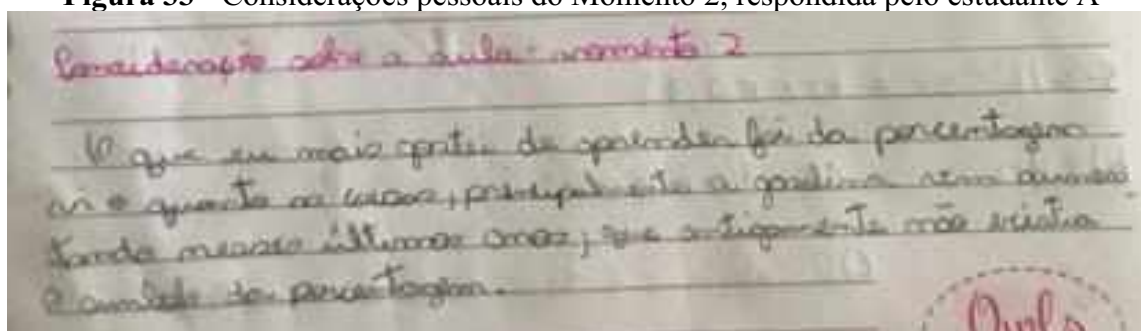 Figura 33 - Considerações pessoais do Momento 2, respondida pelo estudante A
Consideração sobre a aula - momento 2
O que eu mais gostei de aprender foi da percentagem
e quanto as coisas, a gasolina vem aumen
tando nesses últimos anos, que antigamente não existia
o símbolo da percentagem.